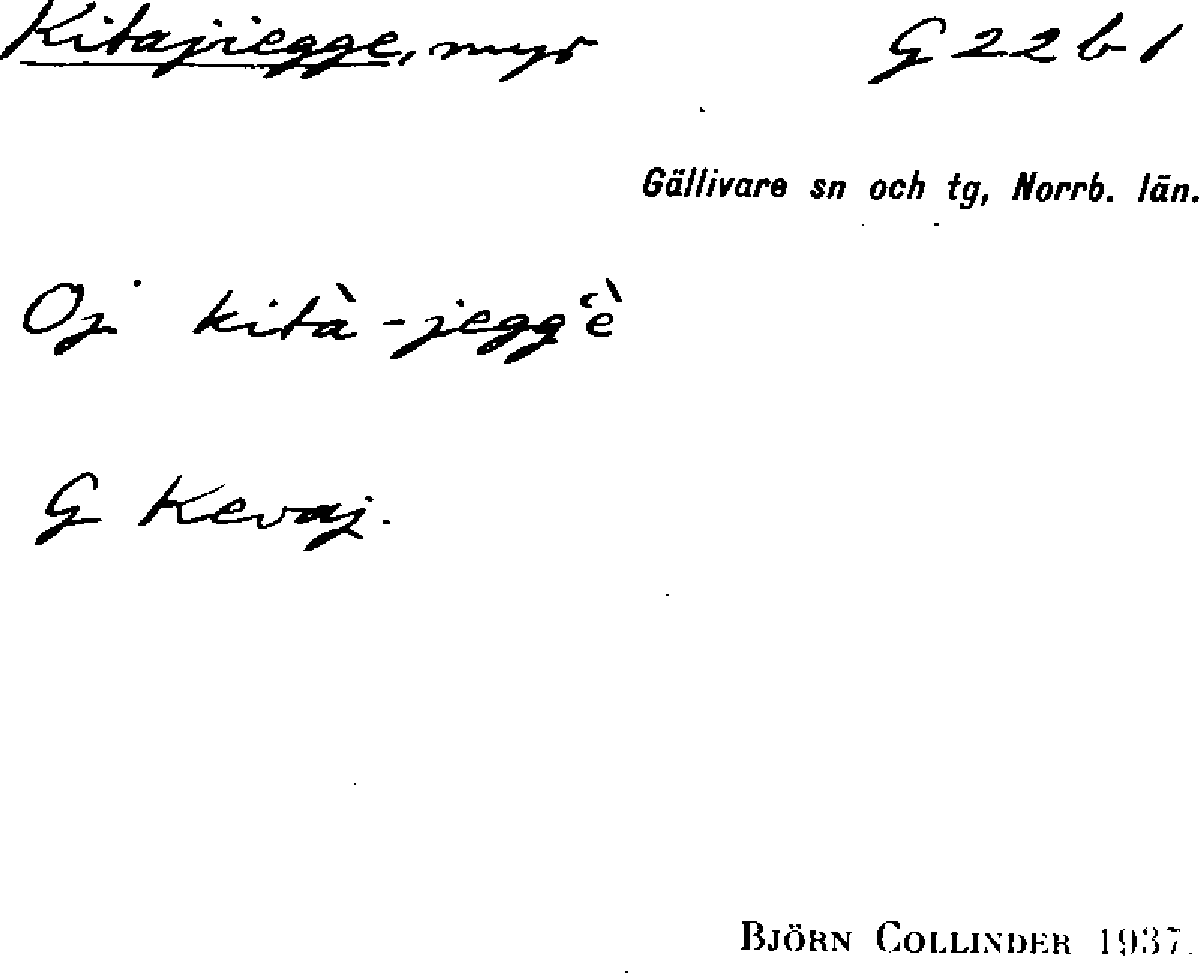 Kitajiegge, myr G 22 b 1
Gällivare sn och tg, Norrb. län.
Oj kità-jeggʻè
G Kevaj.
BJÖRN COLLINDER 1937.